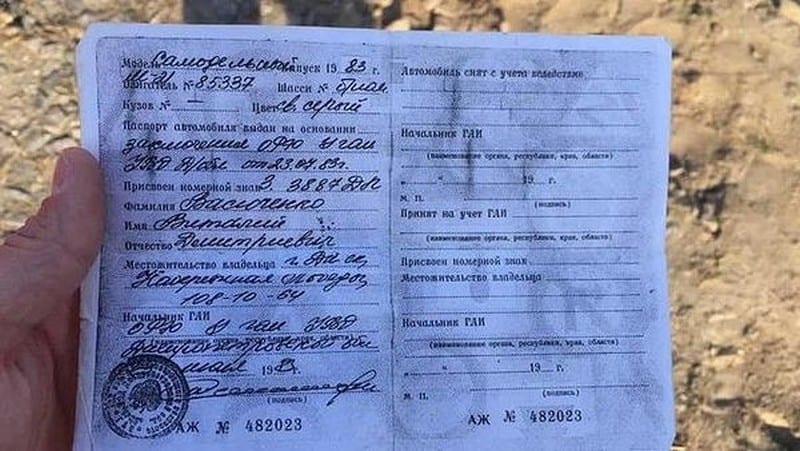 Модель Самодельный Выпуск 1983 г.
Двигатель № 85337 Шасси №
Кузов № — Цвет св. серый
Паспорт автомобиля выдан на основании
заключения
от 23.07.83г.
Присвоен номерной знак 3887ДН
Фамилия Васюченко
Имя Виталий
Отчество Дмитриевич
Местожительство владельца г.
Набережная Победы
108-10-64
Начальник ГАИ
УВД
Днепропетровской обл
мая 1983г.
(подпись)
АЖ № 482023
Автомобиль снят с учета вследствие
Начальник ГАИ
(наименование органа, республики, края, области)
„ “ 19 г.
М. П. (подпись)
Принят на учет ГАИ
(наименование органа, республики, края, области)
Присвоен номерной знак
Местожительство владельца
Начальник ГАИ
(наименование органа, республики, края, области)
„ “ 19 г.
М. П. (подпись)
АЖ № 482023